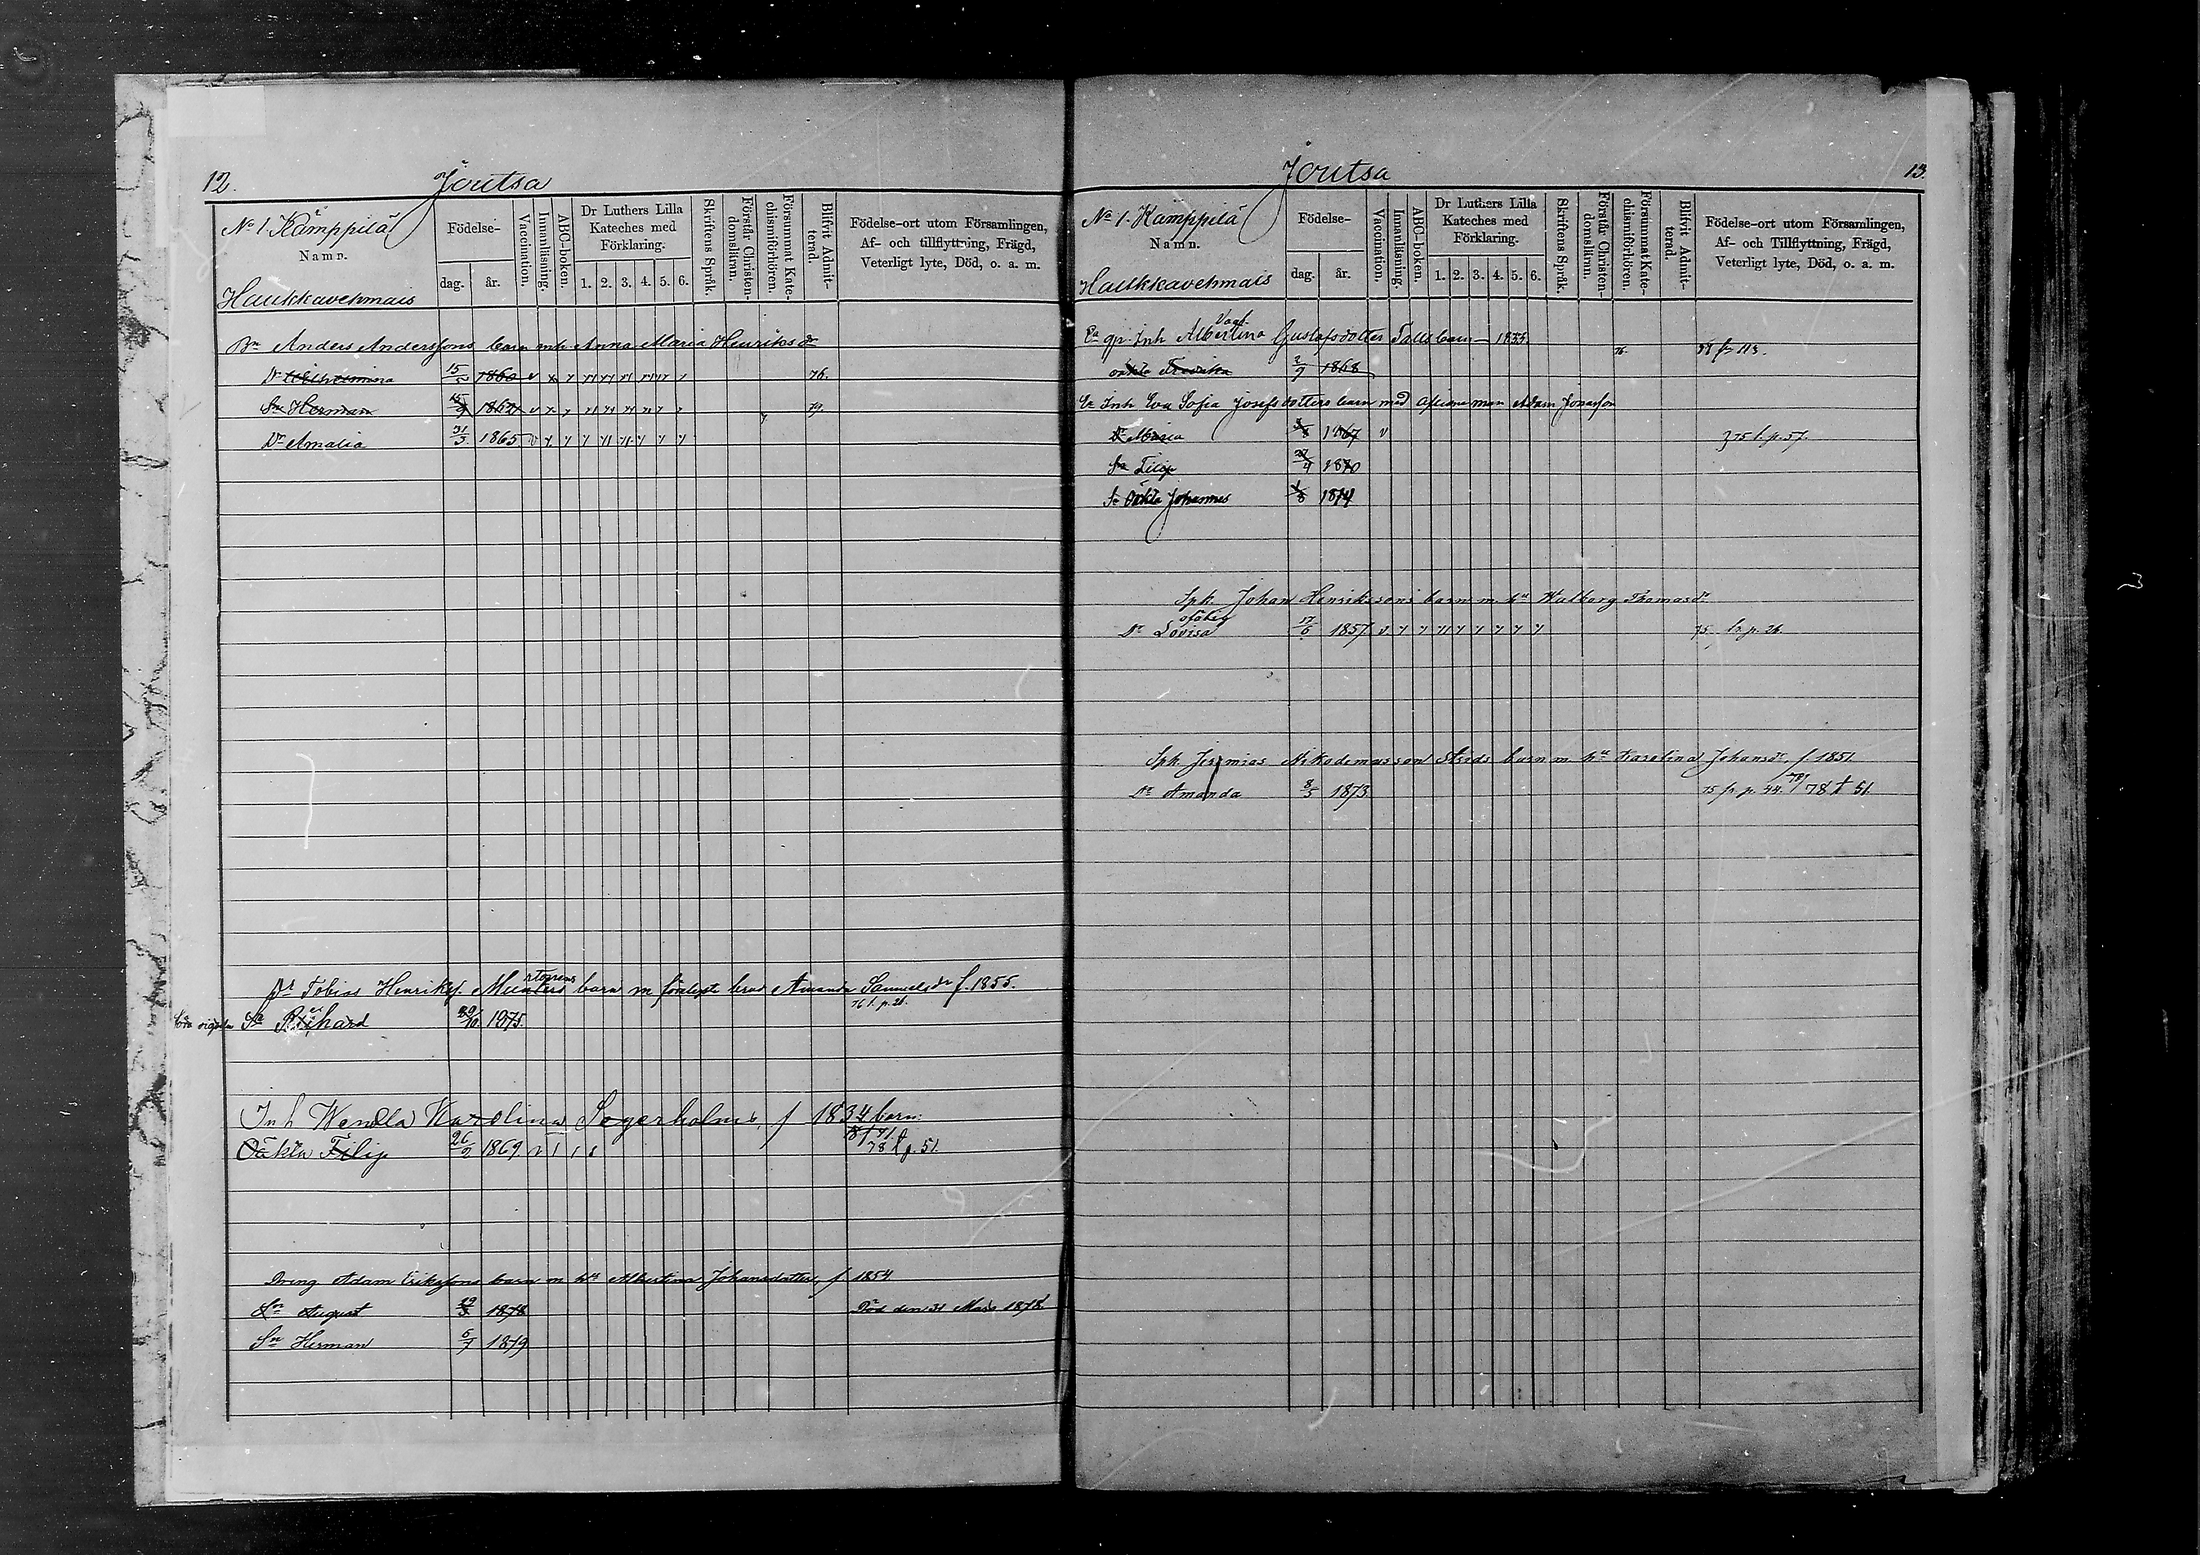 12.
Joutsa
No 1 Kämppilä
Namn.
Haukkavehmais
Födelse-
dag.
år.
Vaccination.
Innanläsning.
ABC-boken.
Dr Luthers Lilla
Kateches med
Förklaring.
1. 2. 3. 4. 5. 6.
Skriftens Språk.
Förstår Christen-
domsläran.
Försummat Kate-
chismiförhören.
Blifvit Admit-
terad.
Födelse-ort utom Församlingen,
Af- och tillflyttning, Frägd,
Veterligt lyte, Död, o. a. m.
Anders Anderssons barn mh Anna Maria Henriks dr
Dr Wilhelmina 15/5 1860 76.
Sn Herman 1862 79.
Dr Amalia 31/3 1865
Tobias Henriks. barn m Amanda Samuelsdr f. 1855.
76 l. p. 26.
Sn Richard 29/10 1875.
Inh Wendla Karolina Segerholms, f 1834 barn:
Oäkta Filip 26/2 1869. 78 p. 51.
Dreng Adam Erikssons barn m hu Albertina Johansdotter, f 1854
Sn August 29/3 1878 Död den 31 Mars 1878
Sn Herman 6/7 1879
Joutsa
13.
No 1. Kämppilä
Namn.
Haukkavehmais
Födelse-
dag.
år.
Vaccination.
Innanläsning.
ABC-boken.
Dr Luthers Lilla
Kateches med
Förklaring.
1. 2. 3. 4. 5. 6.
Skriftens Språk.
Förstår Christen-
domsläran.
Försummat Kate-
chismiförhören.
Blifvit Admit-
terad.
Födelse-ort utom Församlingen,
Af- och Tillflyttning, Frägd,
Veterligt lyte, Död, o. a. m.
Inh Albertina Gustafsdotter Talls barn 1835.
oäkta Fredrika 2/9 1868 76. 113.
Inh Eva Sofia Josefs dotters barn med afsigne man Adam Jonasson
Dr Maria 1867 75 l. p. 57.
Sn Filip 27/4 1870
Sn Oäkta Johannes 1/8 1874
Sph. Johan Henrikssons barn m. hu Walborg Thomasdr
Dr Lovisa 17/6 1857 75 fr p. 26.
Sph. Jeremias Nikodemusson Strids barn m hu Karolina Johansdr, f 1851
Dr Amanda 8/5 1873 75 fr p. 44. 78 t 51.